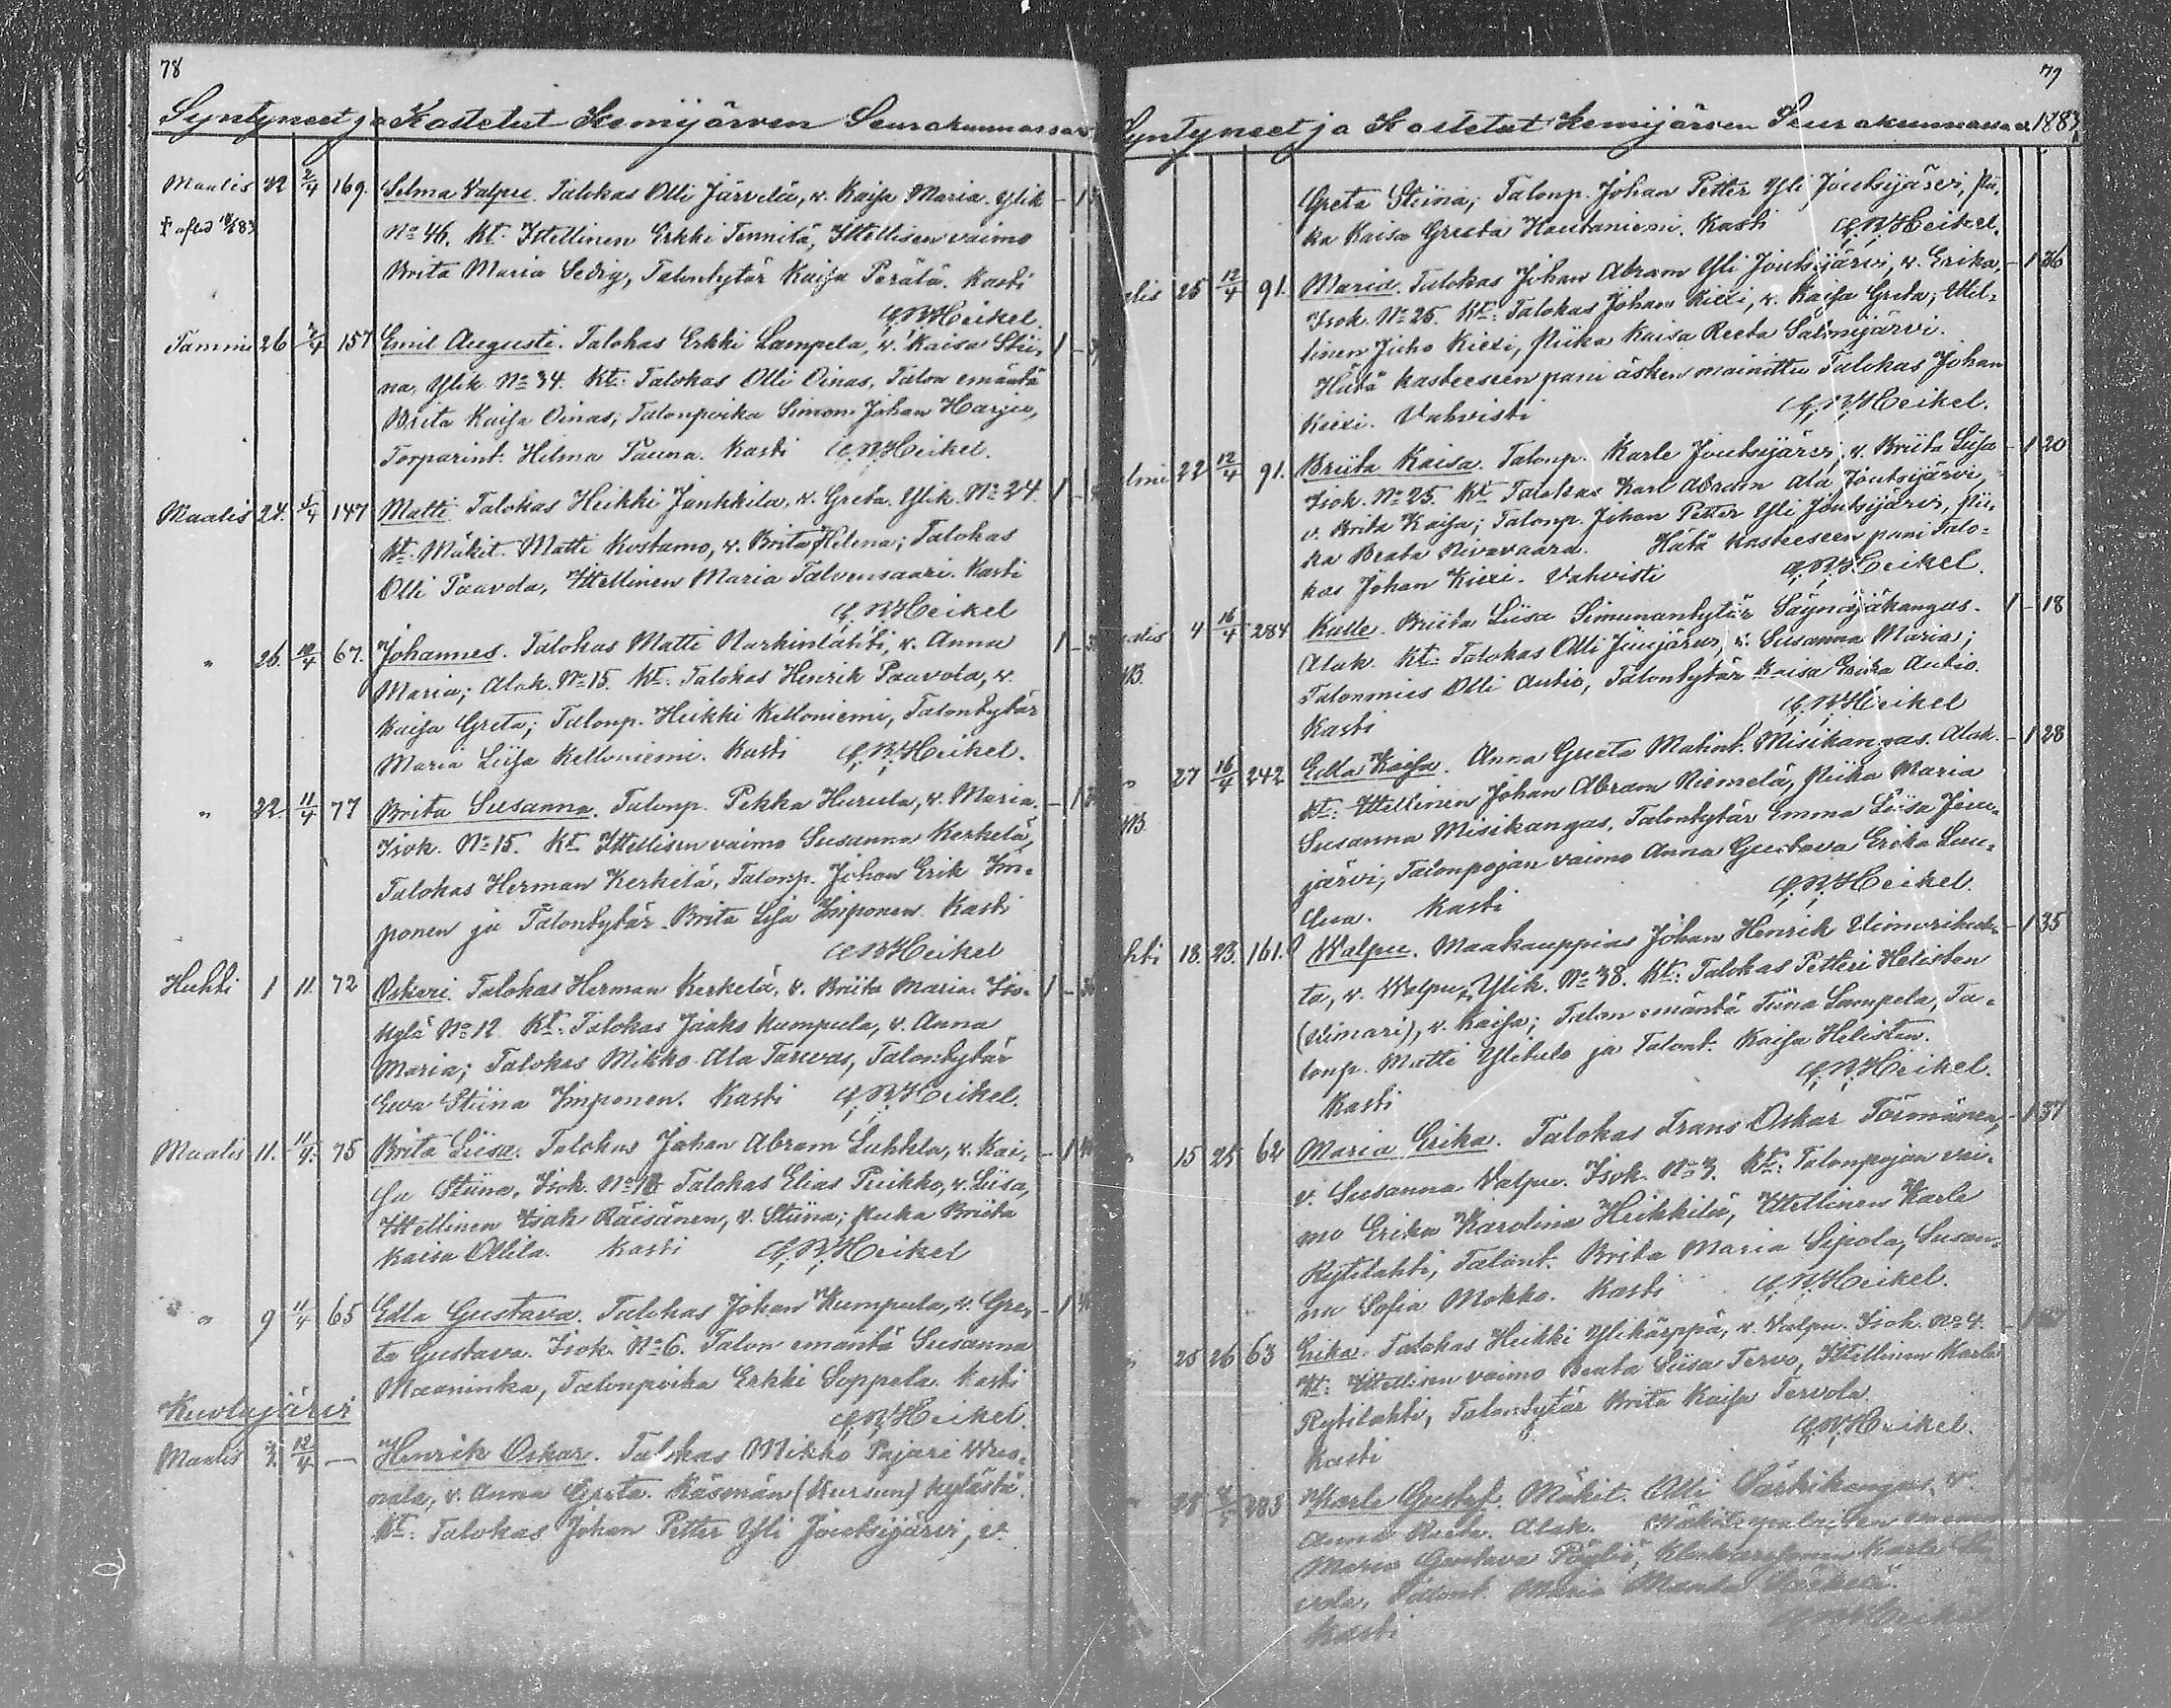 78
Syntyneet ja Kastetut Kemijärven Seurakunnassa
Maalis 22 2/4 169. Selma Valpu. Talokas Olli Järvelä, v. Kaisa Maria. Ylik. - 1
† afled
No 46. Kt: Ittellinen Erkki Tennilä, Ittellisen vaimo
Brita Maria Sedig, Talontytär Kaisa Perälä. Kasti
Heikel.
Tammi 26 2/4 157 Emil Augusti. Talokas Erkki Lampela, v. Kaisa Stii- 1 -
na, Ylik. No 34. Kt: Talokas Olli Oinas, Talon emäntä
Brita Kaisa Oinas; Talonpoika Simon Johan Harju,
Torparint. Hilma Pauna. Kasti Heikel.
Maalis 24. 147 Matti. Talokas Heikki Jankkila, v. Greta. Ylik. No 24. 1 -
Kt. Mäkit. Matti Kostamo, v. Brita Helena; Talokas
Olli Paavola, Ittellinen Maria Talvensaari. Kasti
Heikel
" 26. 10/4 67. Johannes. Talokas Matti Narkinlahti, v. Anna 1 -
Maria; Alak. No 15. Kt. Talokas Henrik Paavola, v.
Kaisa Greta; Talonp. Heikki Kelloniemi, Talontytär
Maria Liisa Kelloniemi. Kasti Heikel.
" 22. 11/4 77 Brita Susanna. Talonp. Pekka Hurula, v. Maria. - 1
Isok. No 15. Kt. Ittellisen vaimo Susanna Kerkelä,
Talokas Herman Kerkelä, Talonp. Johan Erik Im-
ponen ja Talontytär Brita Lisa Imponen. Kasti
Heikel
Huhti 1 11. 72 Oskari. Talokas Herman Kerkelä, v. Briita Maria. Iso- 1 -
kylä No 12. Kt: Talokas Jaako Kumpula, v. Anna
Maria; Talokas Mikko Ala Tarvas, Talontytär
Ewa Stiina Imponen. Kasti Heikel.
Maalis 11. 11/4 75 Brita Liisa. Talokas Johan Abram Luhtela, v. Kai- - 1
sa Stiina, Isok. No 18 Talokas Elias Puikko, v. Liisa,
Ittellinen Isak Räisänen, v. Stiina; Piika Briita
Kaisa Ollila. Kasti Heikel
" 9 11/4 65 Edla Gustava. Talokas Johan Kumpula, v. Gre- - 1
ta Gustava. Isok. No 6. Talon emäntä Susanna
Maaninka, Talonpoika Erkki Soppela. Kasti
Heikel.
Kuolajärvi
Maalis 12/4 — Henrik Oskar. Talokas Mikko Pajari
v. Anna Greta. Käsmän (Kursun) kylästä.
Kt: Talokas Johan Petter Yli Joutsijärvi, v.
79
Syntyneet ja Kastetut Kemijärven Seurakunnassa v. 1883
Greta Stiina; Talonp. Johan Petter Yli Joutsijärvi, Pii-
ka Kaisa Greeta Hautaniemi. Kasti Heikel.
25 12/4 91. Maria. Talokas Johan Abram Yli Joutsijärvi, v. Erika, - 1 36
Isok. No 25. Kt: Talokas Johan Kiexi, v. Kaisa Greta; Ittel-
linen Juho Kiexi, Piika Kaisa Reeta Salmijärvi.
Hätä kasteeseen pani äsken mainittu Talokas Johan
Kiexi. Vahvisti Heikel.
22 12/4 91. Briita Kaisa. Talonp. Karle Joutsijärvi, v. Briita Liisa - 1 20
Isok. No 25. Kt. Talokas Karl Abram Ala Joutsijärvi,
v. Brita Kaisa; Talonp. Johan Petter Yli Joutsijärvi, Pii-
ka Beata Nivavaara. Hätä kasteeseen pani Talo-
kas Johan Kiexi. Vahvisti Heikel.
4 16/4 284 Kalle. Briita Liisa Simunantytär Säynäjäkangas. 1 - 18
Alak. Kt: Talokas Olli Juujärvi, v. Susanna Maria;
Talonmies Olli Autio, Talontytär Kaisa Erika Autio.
Kasti Heikel
27 16/4 242 Edla Kaisa. Anna Greeta Matint. Misikangas. Alak. - 1 28
Kt: Ittellinen Johan Abram Niemelä, Piika Maria
Susanna Misikangas, Talontytär Emma Liisa Juu-
järvi, Talonpojan vaimo Anna Gustava Erika Luu-
sua. Kasti Heikel.
18. 23. 161. Walpu. Maakauppias Johan Henrik - 1 35
ta, v. Walpu, Ylik. No 38. Kt: Talokas Petteri Helisten
v. Kaisa; Talon emäntä Tiina Lampela, Ta-
lonp. Matti Ylitulo ja Talont. Kaisa Helisten.
Kasti Heikel.
15 25 62 Maria Erika. Talokas Frans Oskar Törmänen, - 1 37
v. Susanna Valpu. Isok. No 3. Kt: Talonpojan vai-
mo Erika Karolina Heikkilä, Ittellinen Karle
Kytilahti, Talont. Brita Maria Sipola, Susan-
na Sofia Mokko. Kasti Heikel.
25 26 63 Erika. Talokas Heikki Ylikärppä, v. Valpu. Isok. No 4. -
Kt: Ittellisen vaimo Beata Liisa Tervo, Ittellinen Karle
Kytilahti, Talontytär Brita Kaisa Tervola.
Kasti Heikel.
Karle Gustaf. Mäkit. Olli Särkikangas, v.
Anna Reeta. Alak.
Maria Gustava Karle
Talont. Maria
Kasti Heikel